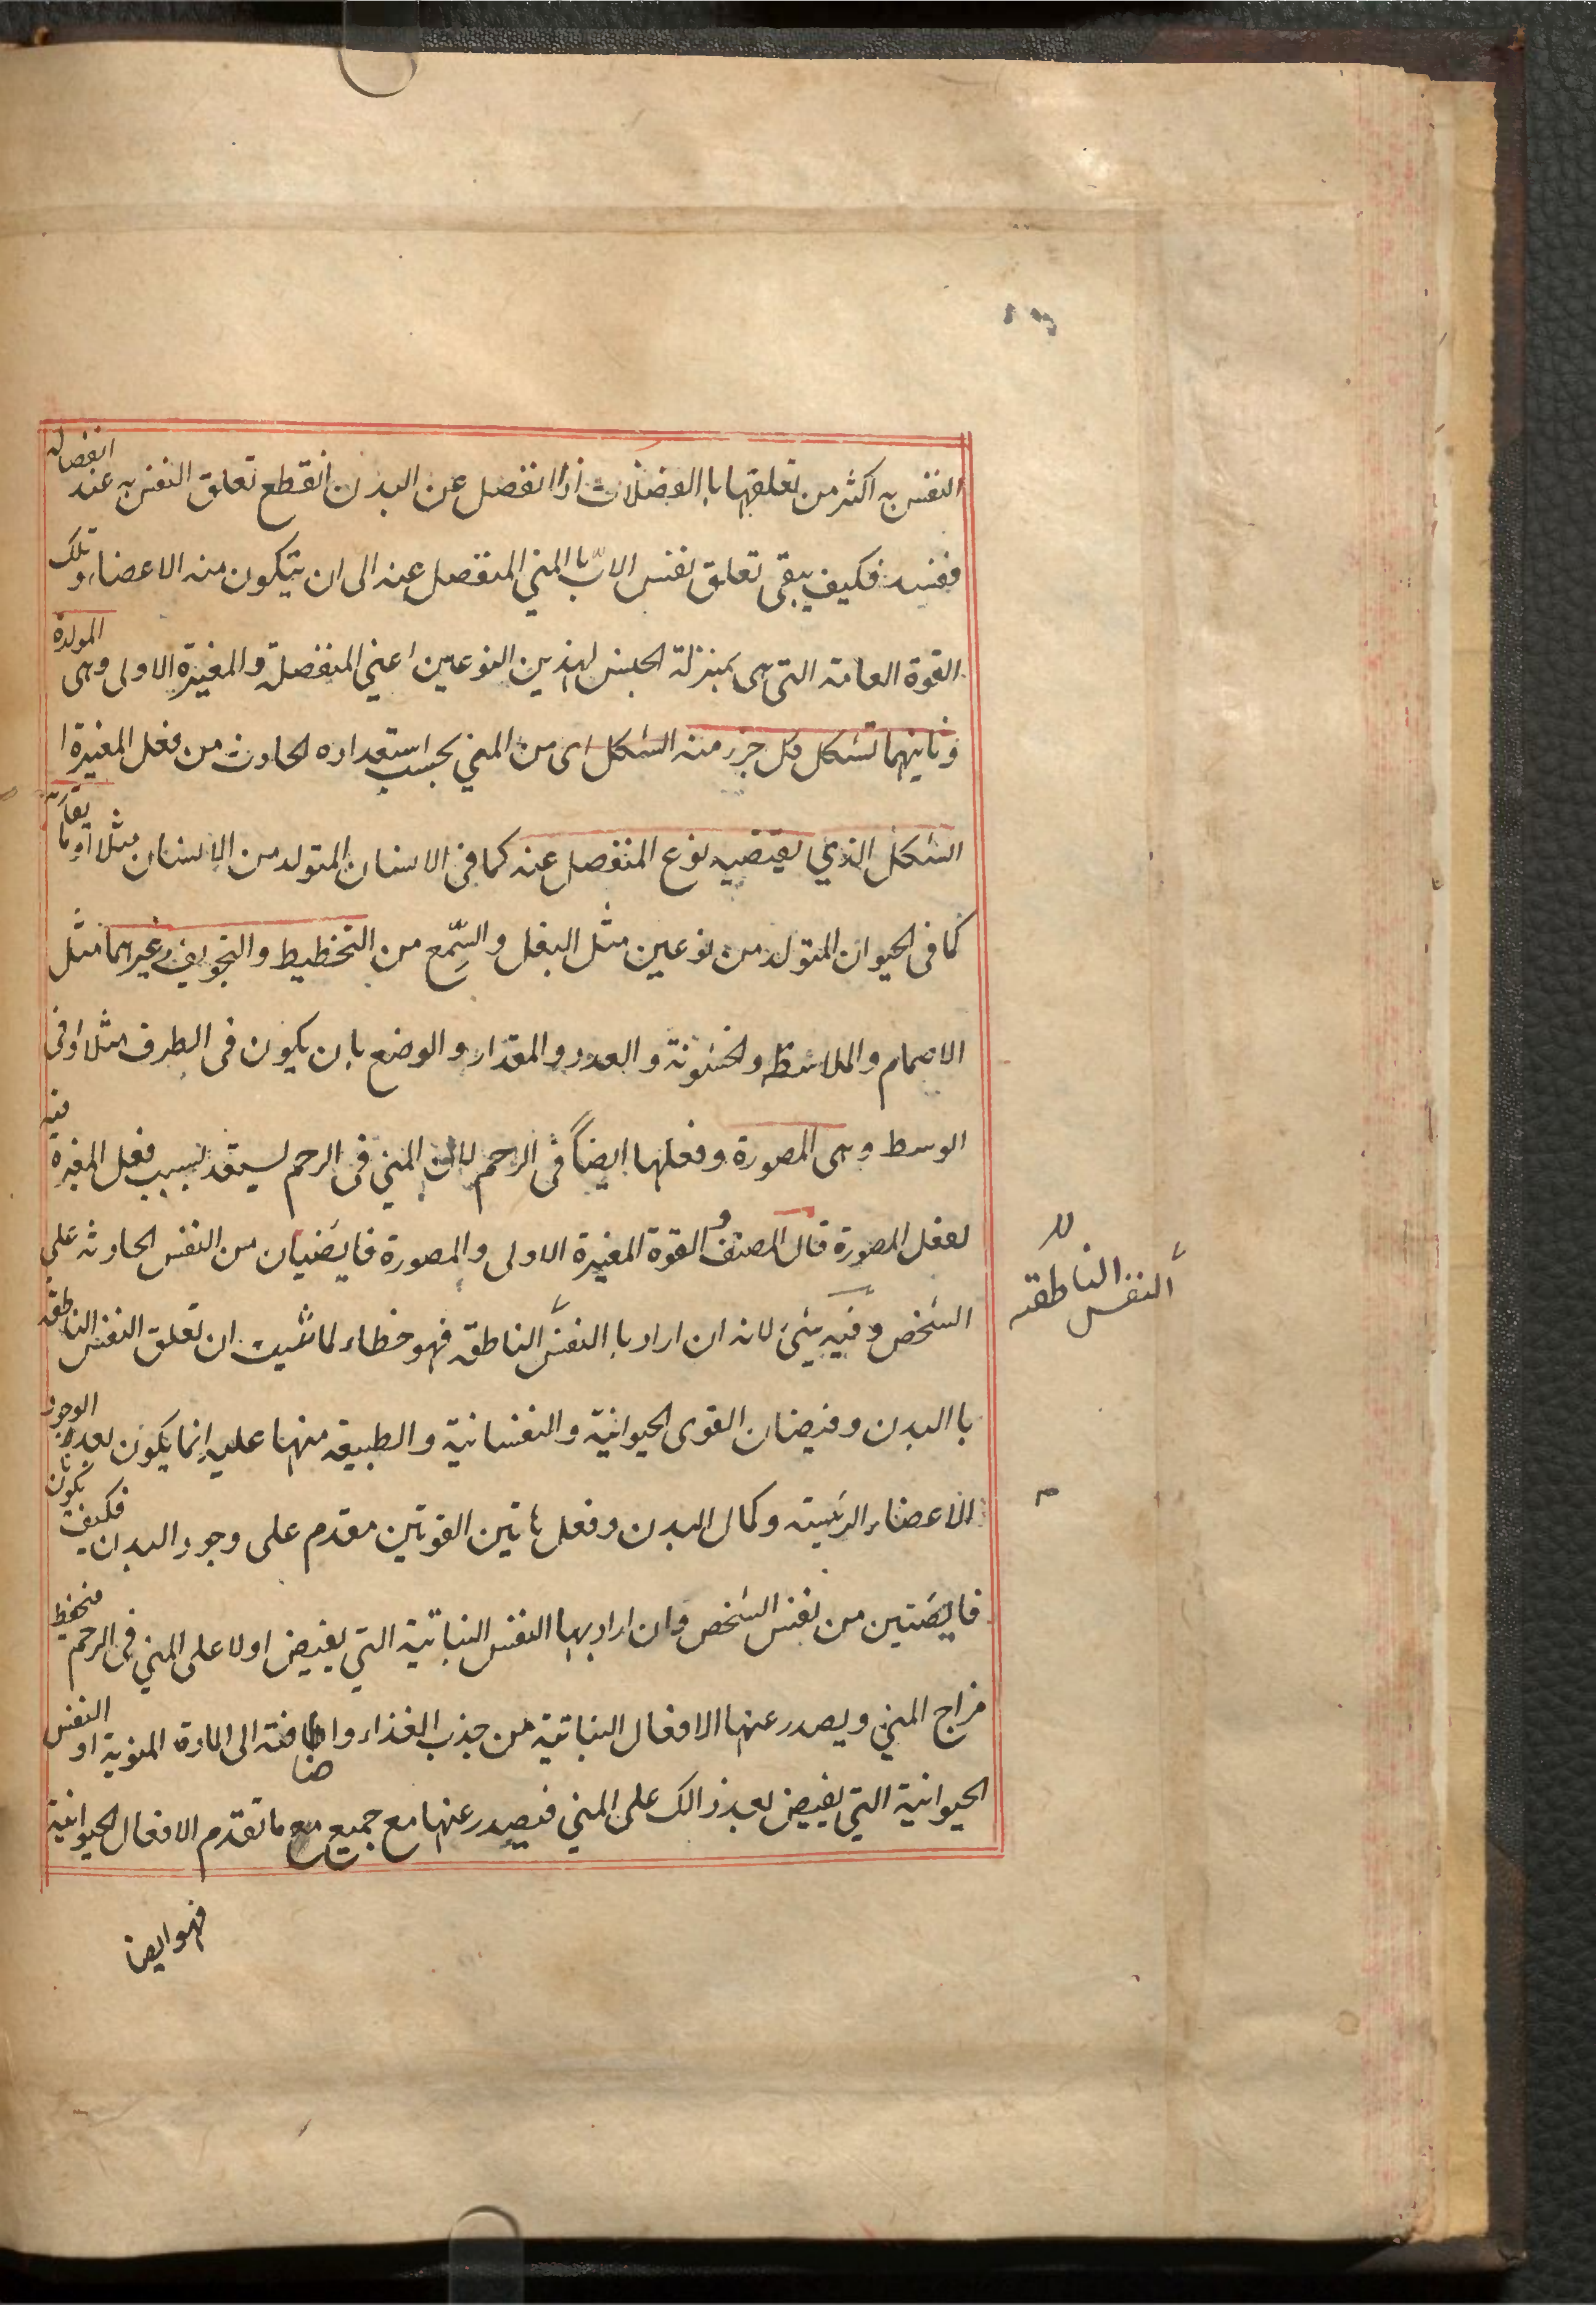 النفس به اكثر من تعلقها با الفضلات اذا انفصل عن البدن انقطع تعلق النفس به عند انفصاله
ففسد فكيف يبقى تعلق نفس الابّ با المني المنفصل عنه الى ان يتكون منه الاعضاء و تلك
القوة العامة التى هى بمنزلة الجنس لهذين النوعين اعني المنفصلة و المغيرة الاولى وهى المولدة
وثانيهما تشكل كل جزء منه الشكل اى من المني بحسب استعداده الحادث من فعل المغيرة ا
الشكل الذي يقتضيه نوع المنفصل عنه كما فى الانسان المتولد من الانسان مثلا او ما يقاربه
كما فى الحيوان المتولد من نوعين مثل البغل و السِّمع من التخطيط و التجويف و غيرهما مثل
الاصمام و الملاسة و الخشونة و العدد و المقدار و الوضع بان يكون فى الطرف مثلا او فى
الوسط وهى المصورة و فعلها ايضاً فى الرحم لان المني فى الرحم ليستعد بسبب فعل المغيرة فيه
لفعل المصورة قال المصنف و القوة المغيرة الاولى و المصورة فايضيان من النفس الحادثه على
الشخص و فيه شئ لانه ان اراد با النفس الناطقه فهو خطاء لما ثبت ان تعلق النفس الناطقة
با البدن و فيضان القوى الحيوانية و النفسانية و الطبيعه منها عليه انما يكون بعد الوجود
الاعضاء الرئيسه و كمال البدن و فعل هاتين القوتين مقدم على وجود البدن فكيف يكونان
فايضتين من نفس الشخص و ان اراد بها النفس النباتية التي يفيض اولا على المني فى الرحم فيحفظ
مزاج المني و يصدر عنها الافعال النباتية من جذب الغذاء و اضافته الى المادة المنوية او النفس
الحيوانية التي يفيض بعد ذالك على المني فيصدر عنها مع جميع ما تقدم الافعال الحيوانية
النفس الناطقه
فهو ايضا